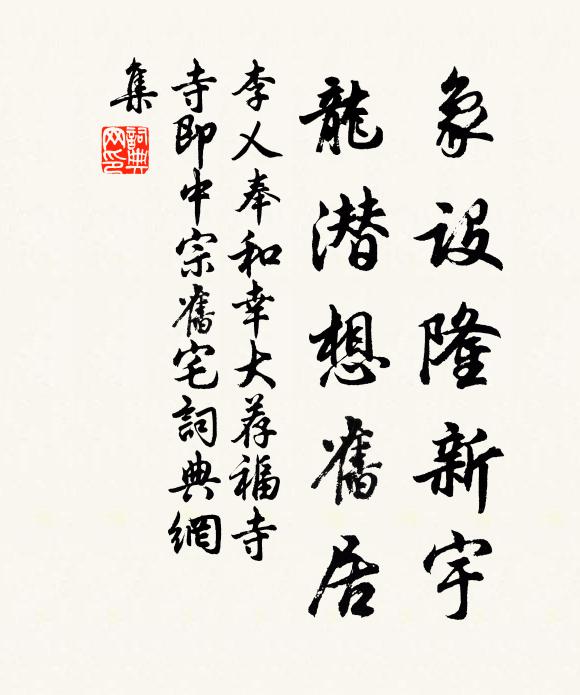 象設隆新宇
龍潜想舊居
李乂奉和幸大荐福寺
寺即中宗舊宅詞典網
集
詞典
网印